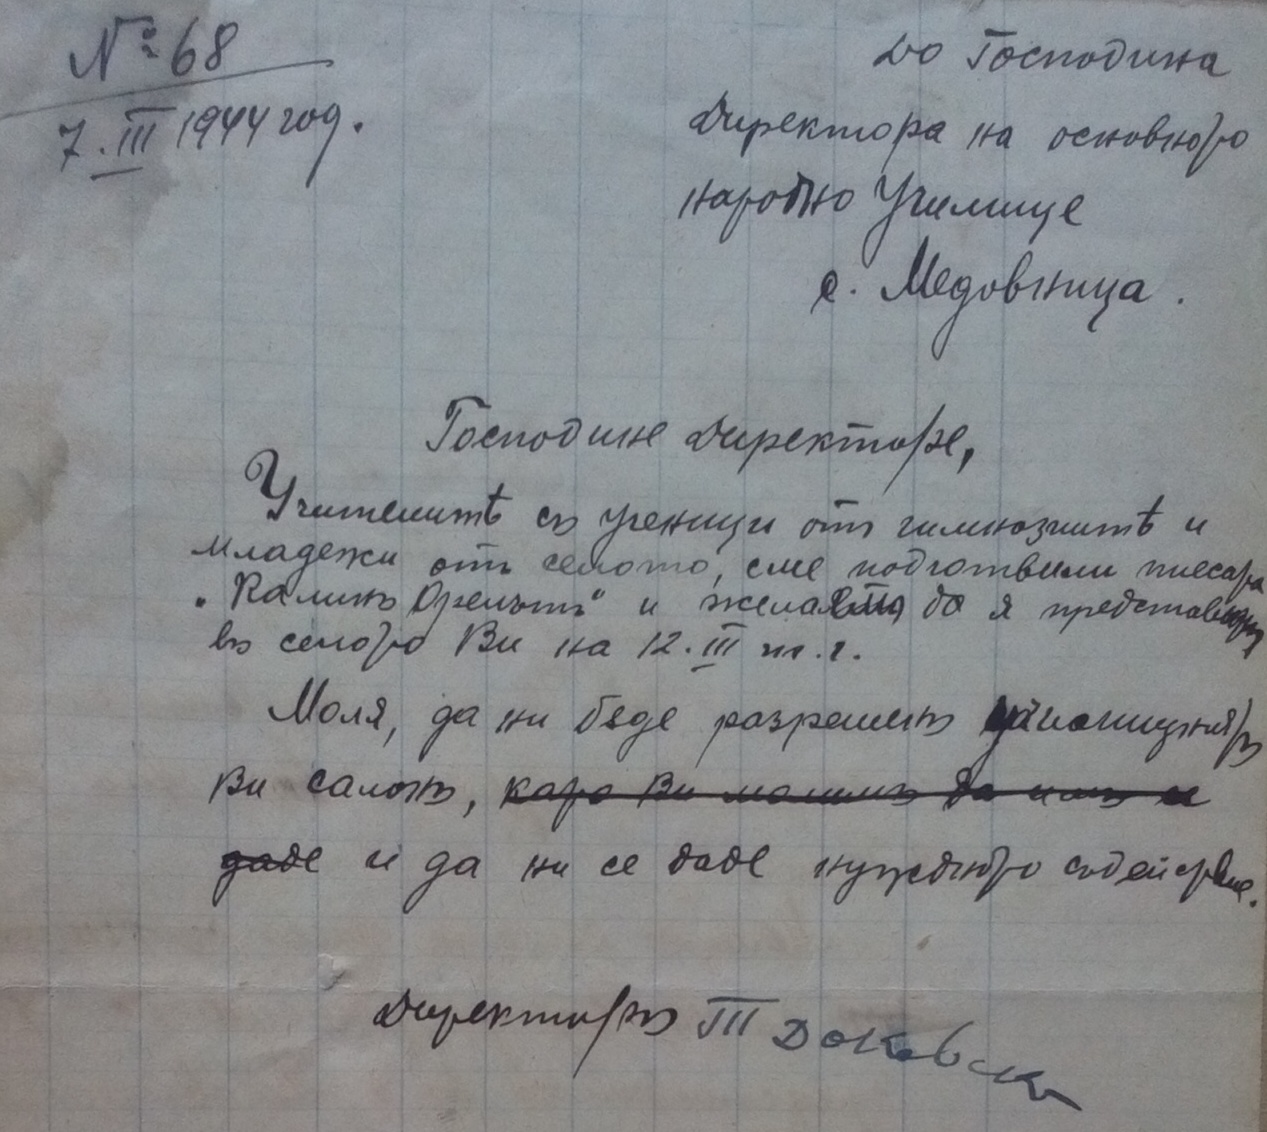 № 68
7.III 1944 год.
До Господина
Директора на основното
народно Училище
с. Медовница.
Господине Директоре,
Учителитѣ съ ученици от гимназиитѣ и
младежи отъ селото, сме подготвили пиесата
"Калинъ Орелътъ" и желаемъ да я представимъ
въ селото Ви на 12.III т.г.
Моля, да ни бѫде разрешенъ
Ви салонъ, като Ви молимъ да ни се
даде и да ни се даде нуждното содействие.
Директоръ Доковски